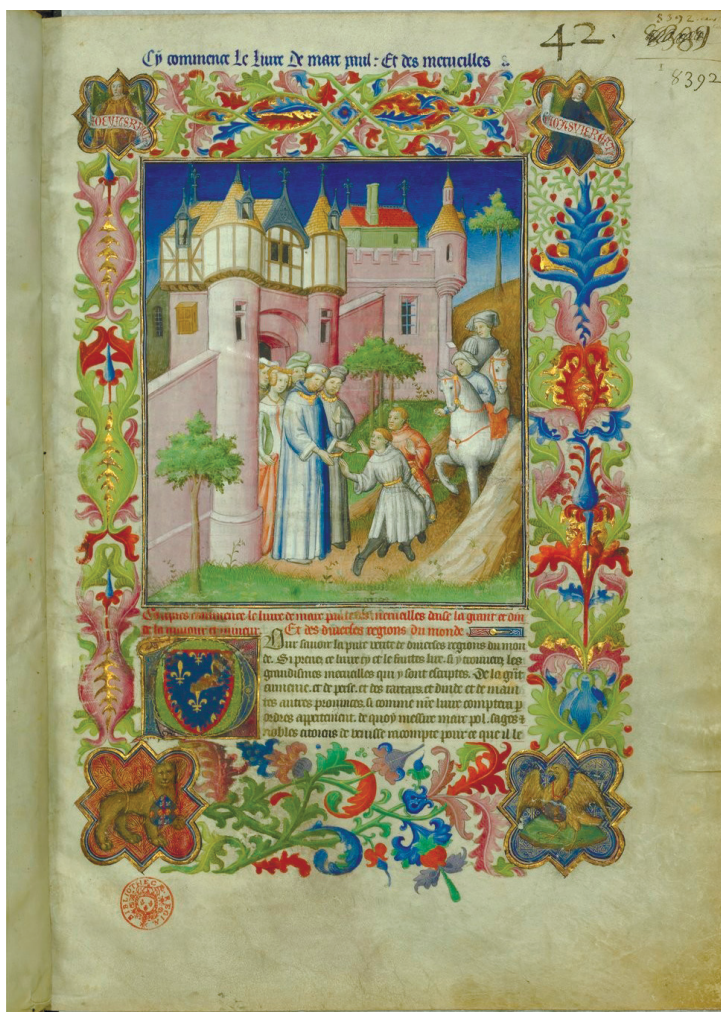 42.
8392
8392
Cy commence Le liure De marc paul : Et des merueilles
Cy apres commence le liure de marc paul et des merueilles daise la grant et din
de la maiour et mineur Et des diuerses regions du monde
Pour sauoir la pure verite de diuerses regions du mon
de. Si prenez ce liure cy et le faites lire. si y trouuerez les
grandismes merueilles qui y sont escriptes. De la grāt
armenie. et de perse. et des tartars. et dinde et de maint
tes autres prouinces. si comme nr̄e liure comptera p
ordres appertement. de quoy messire marc pol. sages et
nobles citoiens de venisse racompte pour ce que il le
BIBLIOTHECÆ REGIÆ